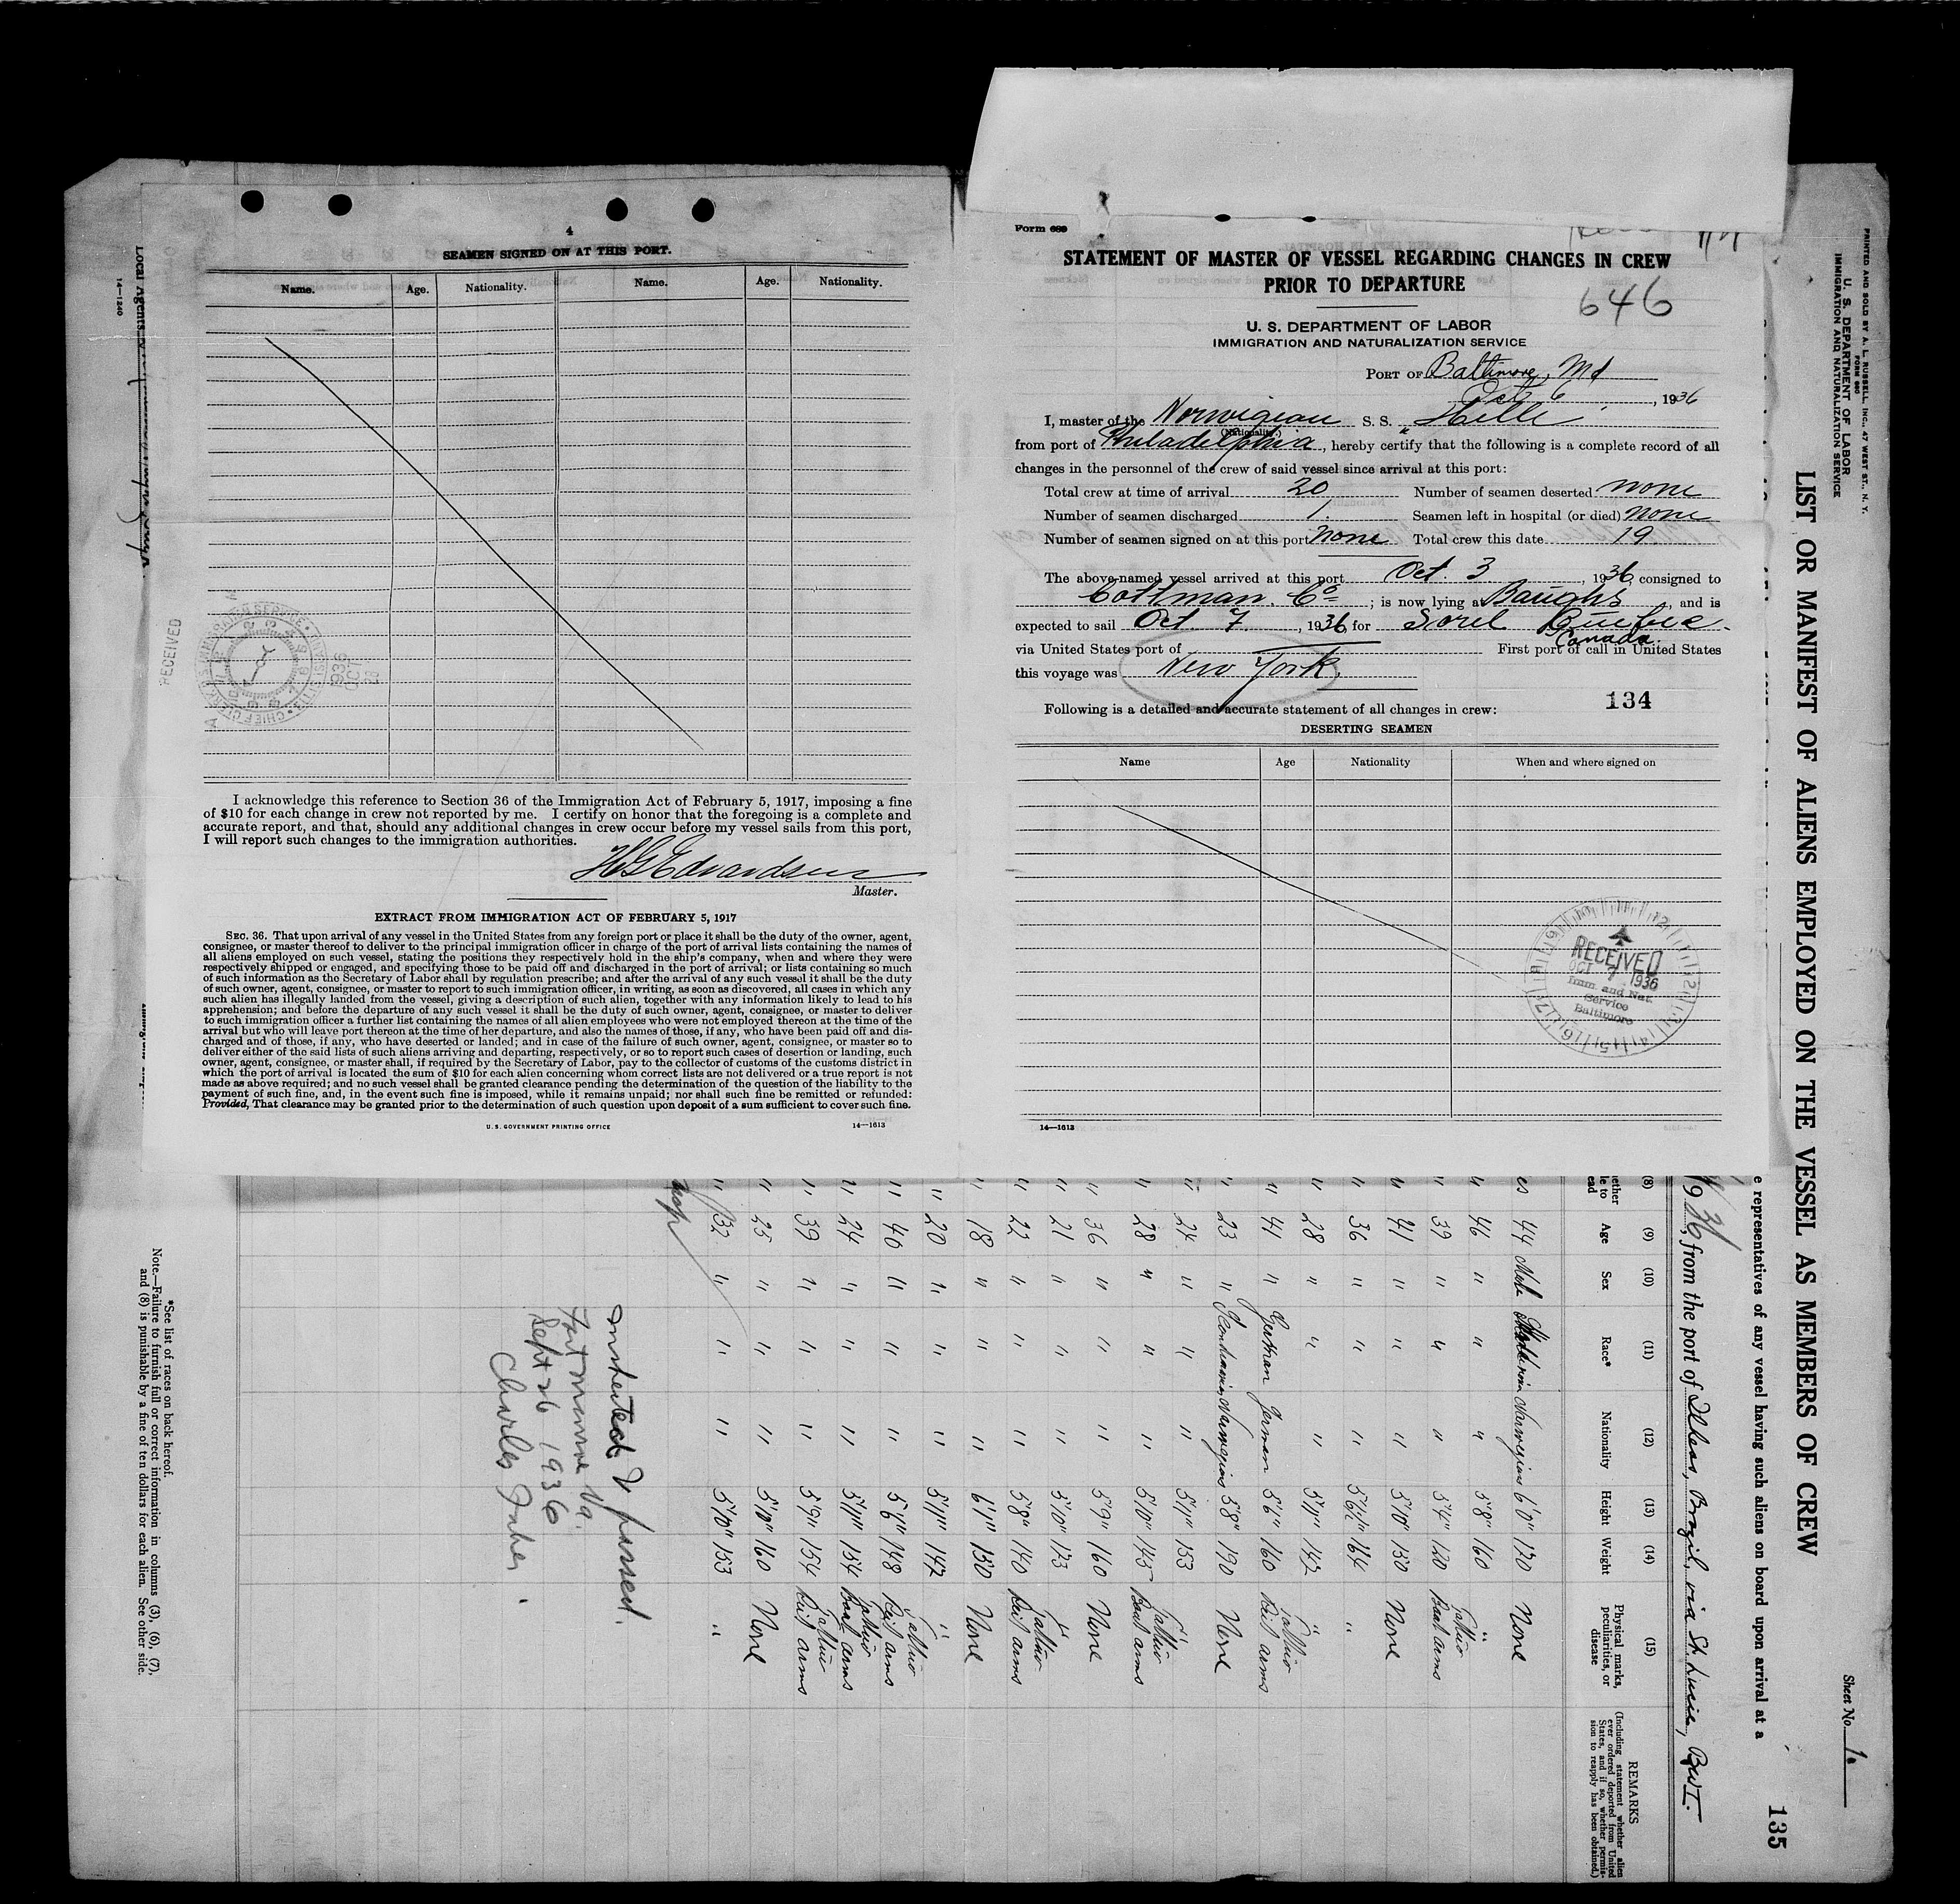 4
SEAMEN SIGNED ON AT THIS PORT.
Name. Age. Nationality. Name. Age. Nationality.
I acknowledge this reference to Section 36 of the Immigration Act of February 5, 1917, imposing a fine
of $10 for each change in crew not reported by me. I certify on honor that the foregoing is a complete and
accurate report, and that, should any additional changes in crew occur before my vessel sails from this port,
I will report such changes to the immigration authorities.
H G Edvardsen
Master.
EXTRACT FROM IMMIGRATION ACT OF FEBRUARY 5, 1917
SEC. 36. That upon arrival of any vessel in the United States from any foreign port or place it shall be the duty of the owner, agent,
consignee, or master thereof to deliver to the principal immigration officer in charge of the port of arrival lists containing the names of
all aliens employed on such vessel, stating the positions they respectively hold in the ship's company, when and where they were
respectively shipped or engaged, and specifying those to be paid off and discharged in the port of arrival; or lists containing so much
of such information as the Secretary of Labor shall by regulation prescribe; and after the arrival of any such vessel it shall be the duty
of such owner, agent, consignee, or master to report to such immigration officer, in writing, as soon as discovered, all cases in which any
such alien has illegally landed from the vessel, giving a description of such alien, together with any information likely to lead to his
apprehension; and before the departure of any such vessel it shall be the duty of such owner, agent, consignee, or master to deliver
to such immigration officer a further list containing the names of all alien employees who were not employed thereon at the time of the
arrival but who will leave port thereon at the time of her departure, and also the names of those, if any, who have been paid off and dis-
charged and of those, if any, who have deserted or landed; and in case of the failure of such owner, agent, consignee, or master so to
deliver either of the said lists of such aliens arriving and departing, respectively, or so to report such cases of desertion or landing, such
owner, agent, consignee, or master shall, if required by the Secretary of Labor, pay to the collector of customs of the customs district in
which the port of arrival is located the sum of $10 for each alien concerning whom correct lists are not delivered or a true report is not
made as above required; and no such vessel shall be granted clearance pending the determination of the question of the liability to the
payment of such fine, and, in the event such fine is imposed, while it remains unpaid; nor shall such fine be remitted or refunded:
Provided, That clearance may be granted prior to the determination of such question upon deposit of a sum sufficient to cover such fine.
U. S. GOVERNMENT PRINTING OFFICE 14—1613
Local Agents
14—1240
RECEIVED
1936 OCT
Form 689
STATEMENT OF MASTER OF VESSEL REGARDING CHANGES IN CREW
PRIOR TO DEPARTURE
646
U. S. DEPARTMENT OF LABOR
IMMIGRATION AND NATURALIZATION SERVICE
PORT OF Baltimore, Md
Oct 6, 1936
I, master of the Norwigian S. S. Hille
(Nationality)
from port of Philadelphia, hereby certify that the following is a complete record of all
changes in the personnel of the crew of said vessel since arrival at this port:
Total crew at time of arrival 20 Number of seamen deserted none
Number of seamen discharged 1. Seamen left in hospital (or died) none
Number of seamen signed on at this port none Total crew this date 19
The above-named vessel arrived at this port Oct. 3, 1936, consigned to
Cottman. Co; is now lying at Baughs, and is
expected to sail Oct 7, 1936, for Sorel Quebec
Canada.
via United States port of First port of call in United States
this voyage was New York.
Following is a detailed and accurate statement of all changes in crew: 134
DESERTING SEAMEN
Name Age Nationality When and where signed on
RECEIVED
OCT 7 1936
Imm. and Nat.
Service
Baltimore
14—1613
PRINTED AND SOLD BY A. L. RUSSELL, INC., 47 WEST ST., N. Y.
FORM 680
U. S. DEPARTMENT OF LABOR
IMMIGRATION AND NATURALIZATION SERVICE
Sheet No. 1.
LIST OR MANIFEST OF ALIENS EMPLOYED ON THE VESSEL AS MEMBERS OF CREW
135
e representatives of any vessel having such aliens on board upon arrival at a
1936, from the port of Ilheos, Brazil, via St. Lucia, BWI.
(8) (9) (10) (11) (12) (13) (14) (15)
Age Sex Race* Nationality Height Weight Physical marks, peculiarities, or disease
REMARKS
(Including statement whether alien
ever ordered deported from United
States, and if so, whether permis-
sion to reapply has been obtained.)
es 44 Male Norwegian 6'0" 170 None
" 46 " " " 5'8" 160 "
" 39 " " " 5'4" 120 Tattoo Boat arms
" 41 " " " 5'10" 150 None
" 36 " " " 5'6½" 164 "
" 28 " " " 5'11" 142 "
" 41 " German German 5'6" 160 Tattoo arms
" 23 " Scandinavian Norwegian 5'8" 190 None
" 24 " " " 5'7" 153 "
" 28 " " " 5'10" 145 Tattoo Boat arms
" 36 " " " 5'9" 160 None
" 21 " " " 5'10" 123 "
" 22 " " " 5'8" 140 Tattoo arms
" 18 " " " 6'1" 130 None
" 20 " " " 5'11" 142 "
" 40 " " " 5'6" 148 Tattoo arms
" 24 " " " 5'11" 154 Tattoo Boat arms
" 39 " " " 5'9" 154 Tattoo arms
" 25 " " " 5'10" 160 None
" 32 " " " 5'10" 153 "
Inspected & passed.
Fort Monroe Va.
Sept 26 1936
Charles
*See list of races on back hereof.
Note.—Failure to furnish full or correct information in columns (3), (6), (7),
and (8) is punishable by a fine of ten dollars for each alien. See other side.